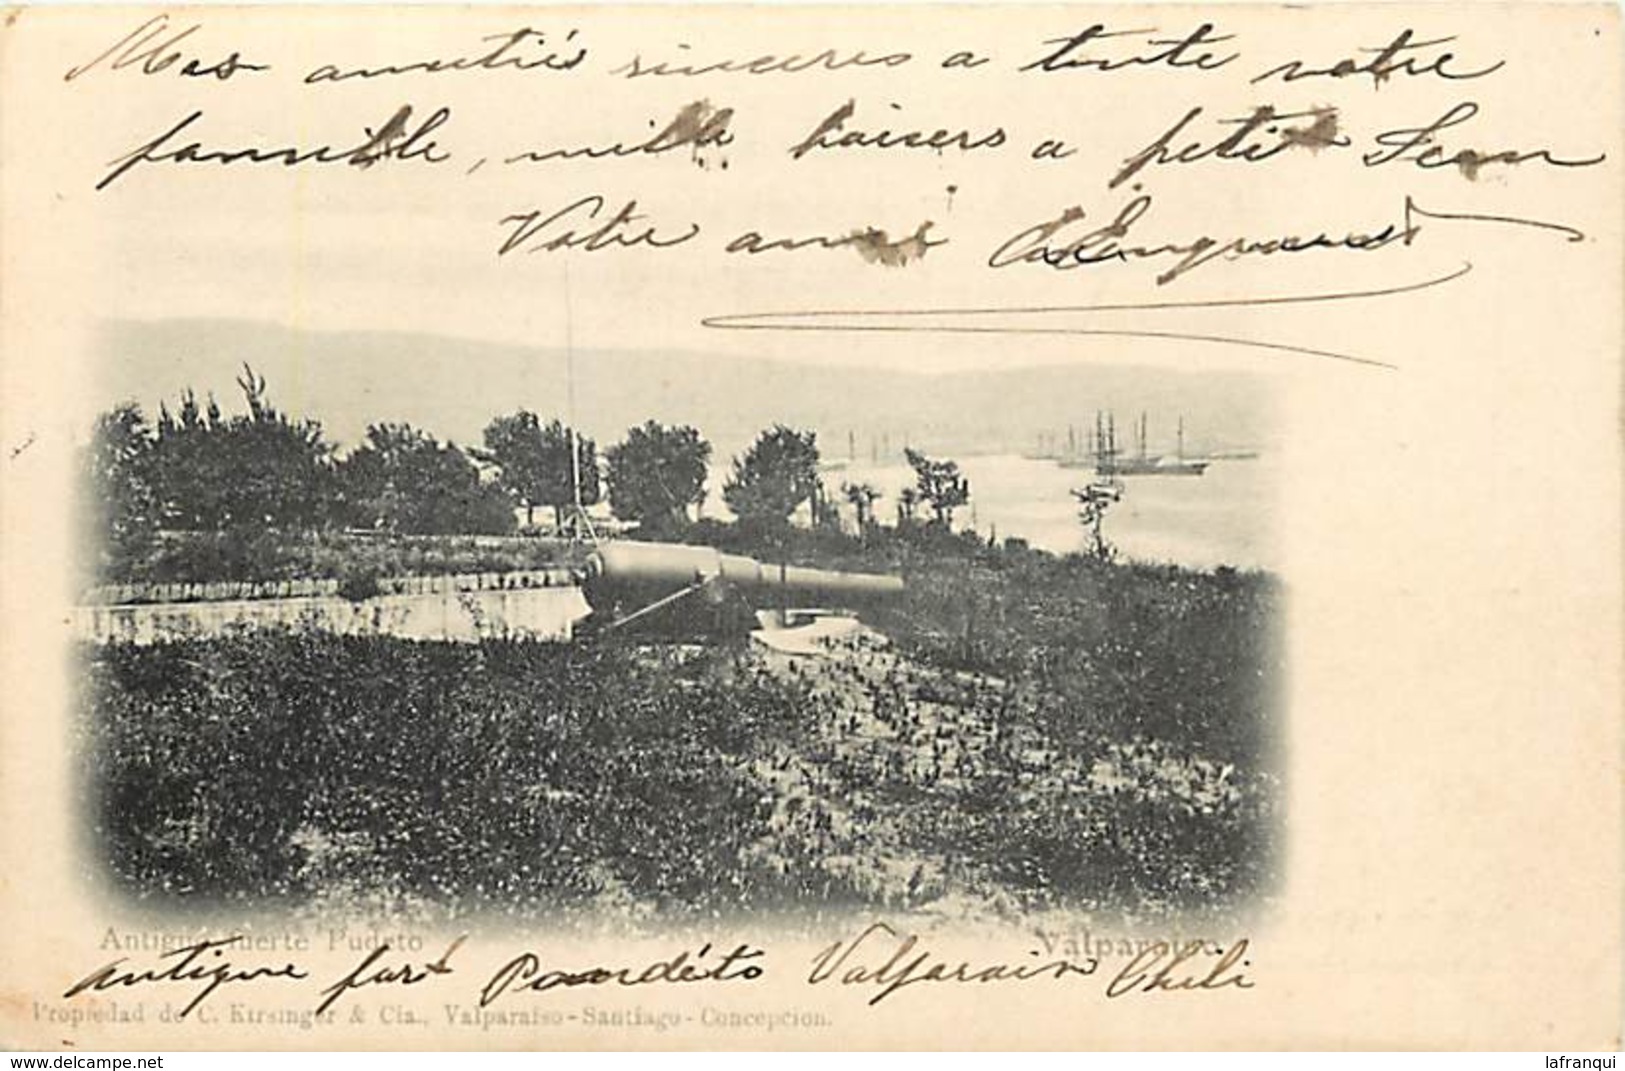 Mes amitiés sinceres a toute votre
famille, mille baisers a petit Jean
Votre ami
Antiguo fuerte Pudeto
Valparaiso
antique fort Poudéto Valparaiso Chili
Propiedad de C. Kirsinger & Cia., Valparaiso - Santiago - Concepcion.
www.delcampe.net
lafranqui